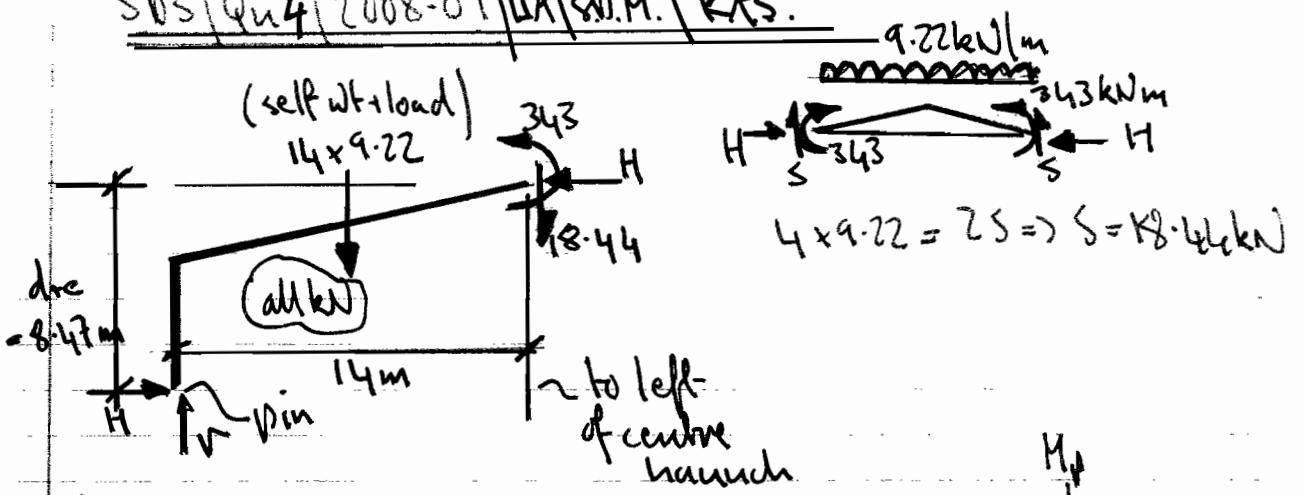 SDS/Qu4/2008-09/UA/S.D.M./KAS.
9.22kN/m
(self wt+load)
14 x 9.22
343
H
18.44
H
343
S
343kNm
S
H
4 x 9.22 = 2S => S = 18.44kN
d+e
= 8.47m
all kN
14m
H
V
pin
~ to left
of centre
haunch
Mp